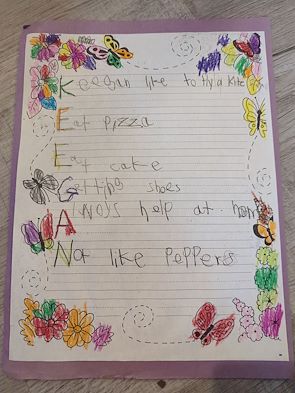 Keegan like to fly a kite
Eat pizza
Eat cake
Getting shoes
Alwols help at hom
Not like peppers